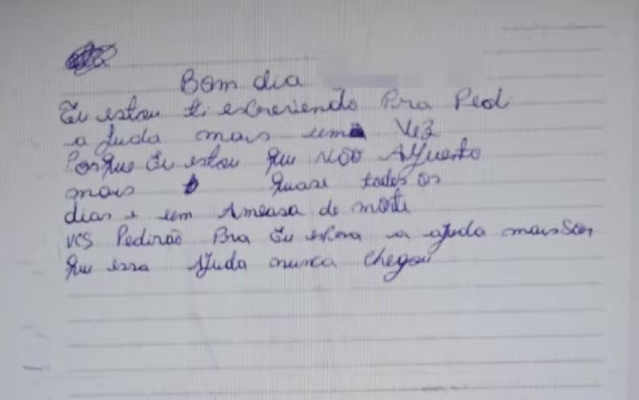 Bom dia
Eu estou ti escrevendo Pra Pedi
a Juda mais uma Vez
Porque Eu estou que NÃO AGuento
mais quase todos os
dias e um Ameasa de morte
VCS Pedirão Pra Eu espera a ajuda mais Sor
que essa Ajuda nunca chegou